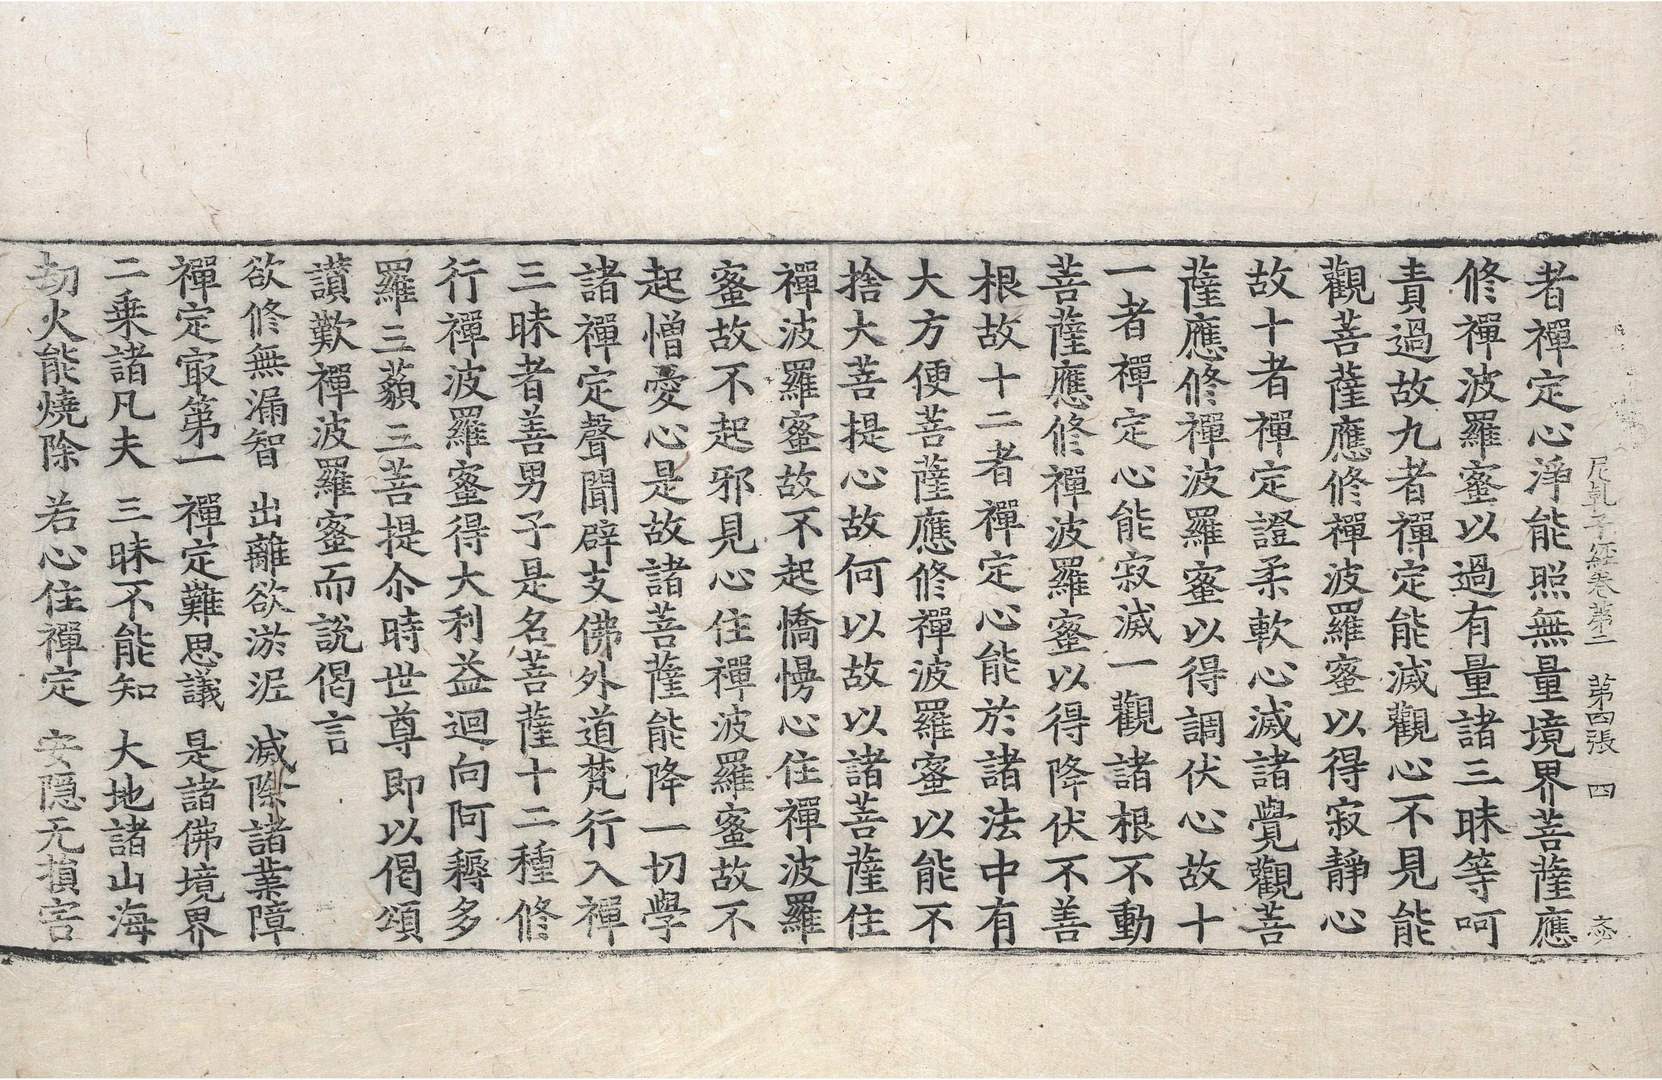 尼乹子經卷第二 第四張 四
者禪定心淨能照無量境界菩薩應
修禪波羅蜜以過有量諸三昧等呵
責過故九者禪定能滅觀心不見能
觀菩薩應修禪波羅蜜以得寂靜心
故十者禪定證柔軟心滅諸覺觀菩
薩應修禪波羅蜜以得調伏心故十
一者禪定心能寂滅一觀諸根不動
菩薩應修禪波羅蜜以得降伏不善
根故十二者禪定心能於諸法中有
大方便菩薩應修禪波羅蜜以能不
捨大菩提心故何以故以諸菩薩住
禪波羅蜜故不起憍慢心住禪波羅
蜜故不起邪見心住禪波羅蜜故不
起憎愛心是故諸菩薩能降一切學
諸禪定聲聞辟支佛外道梵行入禪
三昧者善男子是名菩薩十二種修
行禪波羅蜜得大利益迴向阿耨多
羅三藐三菩提尒時世尊即以偈頌
讃歎禪波羅蜜而說偈言
欲修無漏智 出離欲淤泥 滅除諸業障
禪定㝡第一 禪定難思議 是諸佛境界
二乗諸凡夫 三昧不能知 大地諸山海
劫火能燒除 若心住禪定 安隱无損害